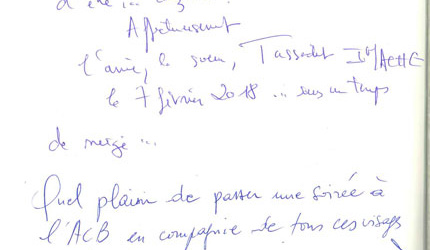 Affectueusement
l'amie, la soeur, Tassadit
le 7 février 2018 ... sous un temps
de neige ...
Quel plaisir de passer une soirée à
l'ACB en compagnie de tous ces visages